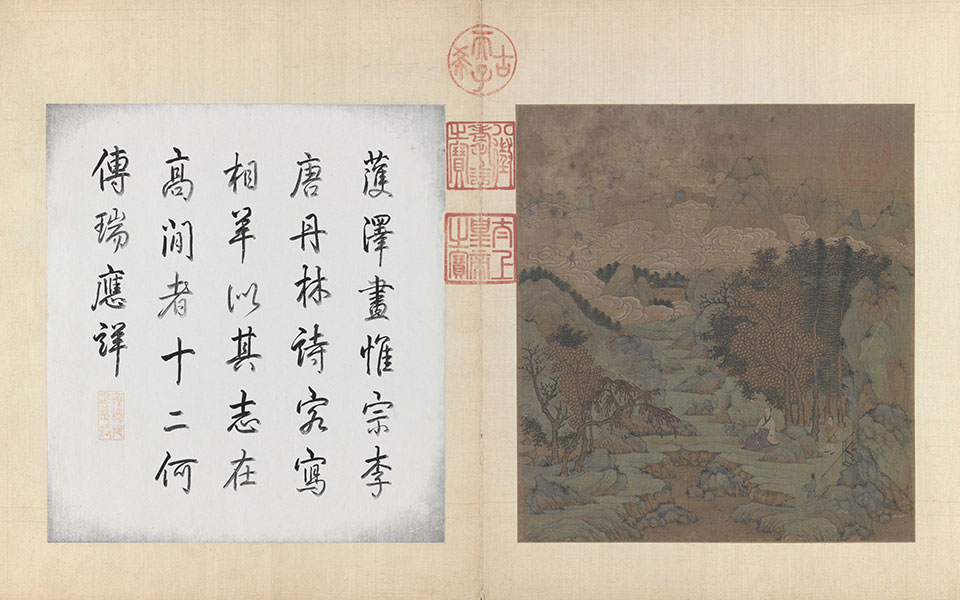 濩澤畫惟宗李
唐丹林詩客寫
相羊以其志在
高閒者十二何
傳瑞應祥
古希天子
八徵耄念之寶
太上皇帝之寶